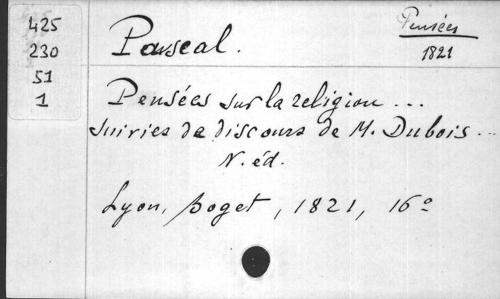 425
230
51
1
Pascal.
Pensées
1821
Pensées sur la religion ...
suivies de discours de M. Dubois ...
N. éd.
Lyon, Boget, 1821, 16°